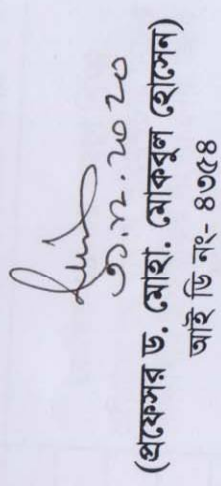 ৩১.১২.২০২০
(প্রফেসর ড. মোহা. মোকবুল হোসেন)
আই ডি নং- ৪৩৫৪